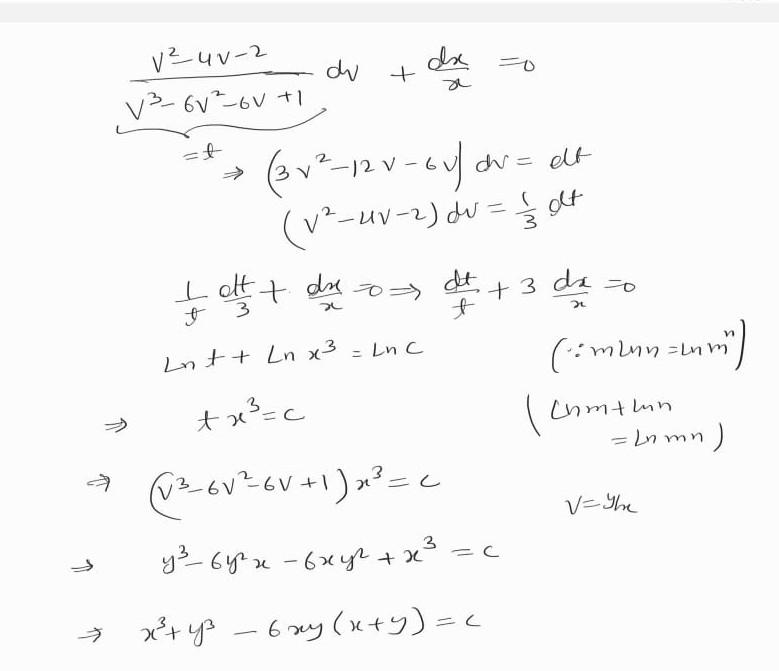 V²-4V-2 / V³-6V²-6V+1 dv + dx/x =0
=t ⇒ (3v²-12V-6V) dv = dt
(V²-4V-2) dv = 1/3 dt
1/t dt/3 + dx/x =0 ⇒ dt/t + 3 dx/x =0
Ln t + Ln x³ = Ln C (∵ m ln n = Ln mⁿ)
⇒ t x³ = C (Lnm + lnn
= Ln mn)
⇒ (V³-6V²-6V+1) x³ = C
V=y/x
⇒ y³-6y²x-6xy²+x³ = C
⇒ x³+y³-6xy(x+y) = C